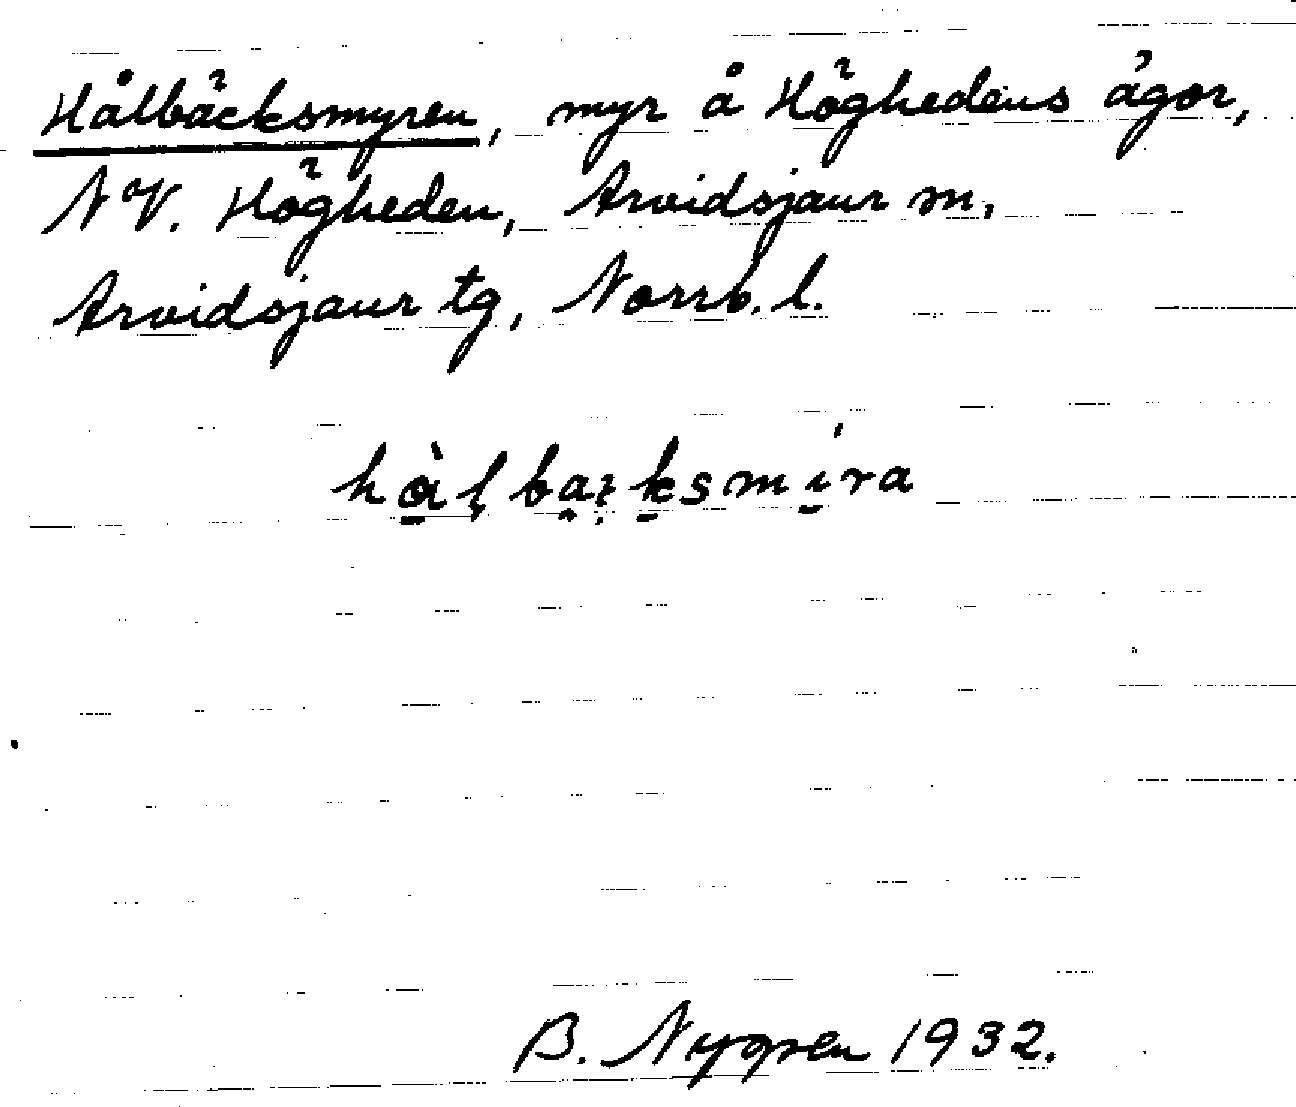 Hålbäcksmyren, myr å Höghedens ägor,
NV. Högheden, Arvidsjaur sn,
Arvidsjaur tg, Norrb. l.
B. Nygren 1932.